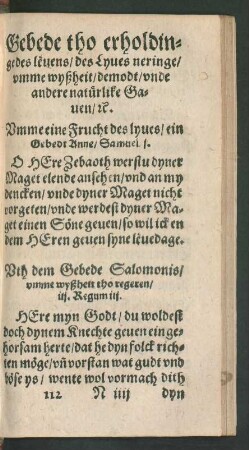 Gebede tho erholdin-
gedes lëuens/des Lyues neringe/
vmme wyßheit/demodt/vnde
andere natürlike Ga-
uen/ꝛc.
Vmme eine Frucht des lyues/ein
Gebedt Anne/Samuel. j.
O HEre Zebaoth werstu dyner
Maget elende ansehen/vnd an my
dencken/vnde dyner Maget nicht
vorgeten/vnde werdest dyner Ma-
get einen Söne geuen/so wil ick en
dem HEren geuen syne lëuedage.
Vth dem Gebede Salomonis/
vmme wyßheit tho regeren/
iij. Regum iij.
HEre myn Godt/du woldest
doch dynem Knechte geuen ein ge-
horsam herte/dat he dyn folck rich-
ten möge/vñ vorstan wat gudt vnd
böse ys/wente wol vormach dith
112 N iiij dyn